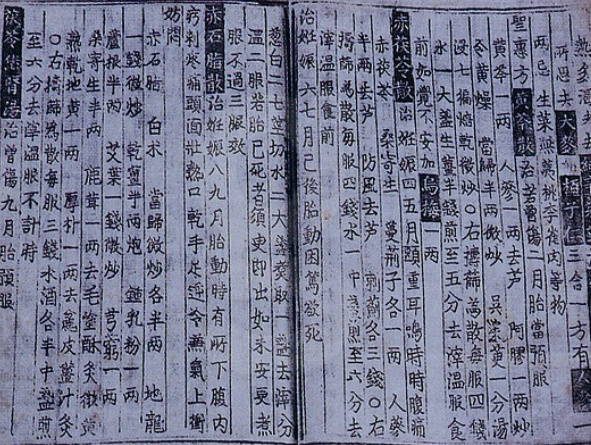 兩忌生菜葱桃李雀肉等物
聖惠方黃芩散治若曾傷二月胎當預服
黃芩一兩 人參一兩去芦 阿膠一兩炒
令黃燥 當歸半兩微炒 吳茱萸一分湯
浸七徧焙乾微炒○右擣篩為散每服四錢
水一大盞生薑半錢煎至五分去滓溫服食
前如覺不安加烏梅一兩
赤茯苓散治妊娠四五月頭重耳鳴時時腹痛
赤茯苓 桑寄生 蔓荊子各一兩 人參
半兩去芦 防風去芦 各三錢○右
擣篩為散每服四錢水一中盞煎至六分去
滓溫服食前
治妊娠六七月已後胎動困篤欲死
葱白二七莖切水二大盞煮取一盞去滓分
溫二服若胎已死者須臾即出如未安更煮
服不過三服效
赤石脂散治妊娠八九月胎動時有所下腹內
㽲刺疼痛頭面壯熱口乾手足逆冷蒸氣上衝
妨悶
赤石脂 白朮 當歸微炒各半兩 地龍
一錢微炒 乾薑半兩炮 鍾乳粉一兩
蘆根半兩 艾葉一錢微炒 芎藭一兩
桑寄生半兩 鹿茸一兩去毛塗酥炙微黃
熟乾地黃一兩 厚朴一兩去麁皮薑汁炙
○右擣篩為散每服三錢水酒各半中盞煎
至六分去滓溫服不計時
治曾傷九月胎預服